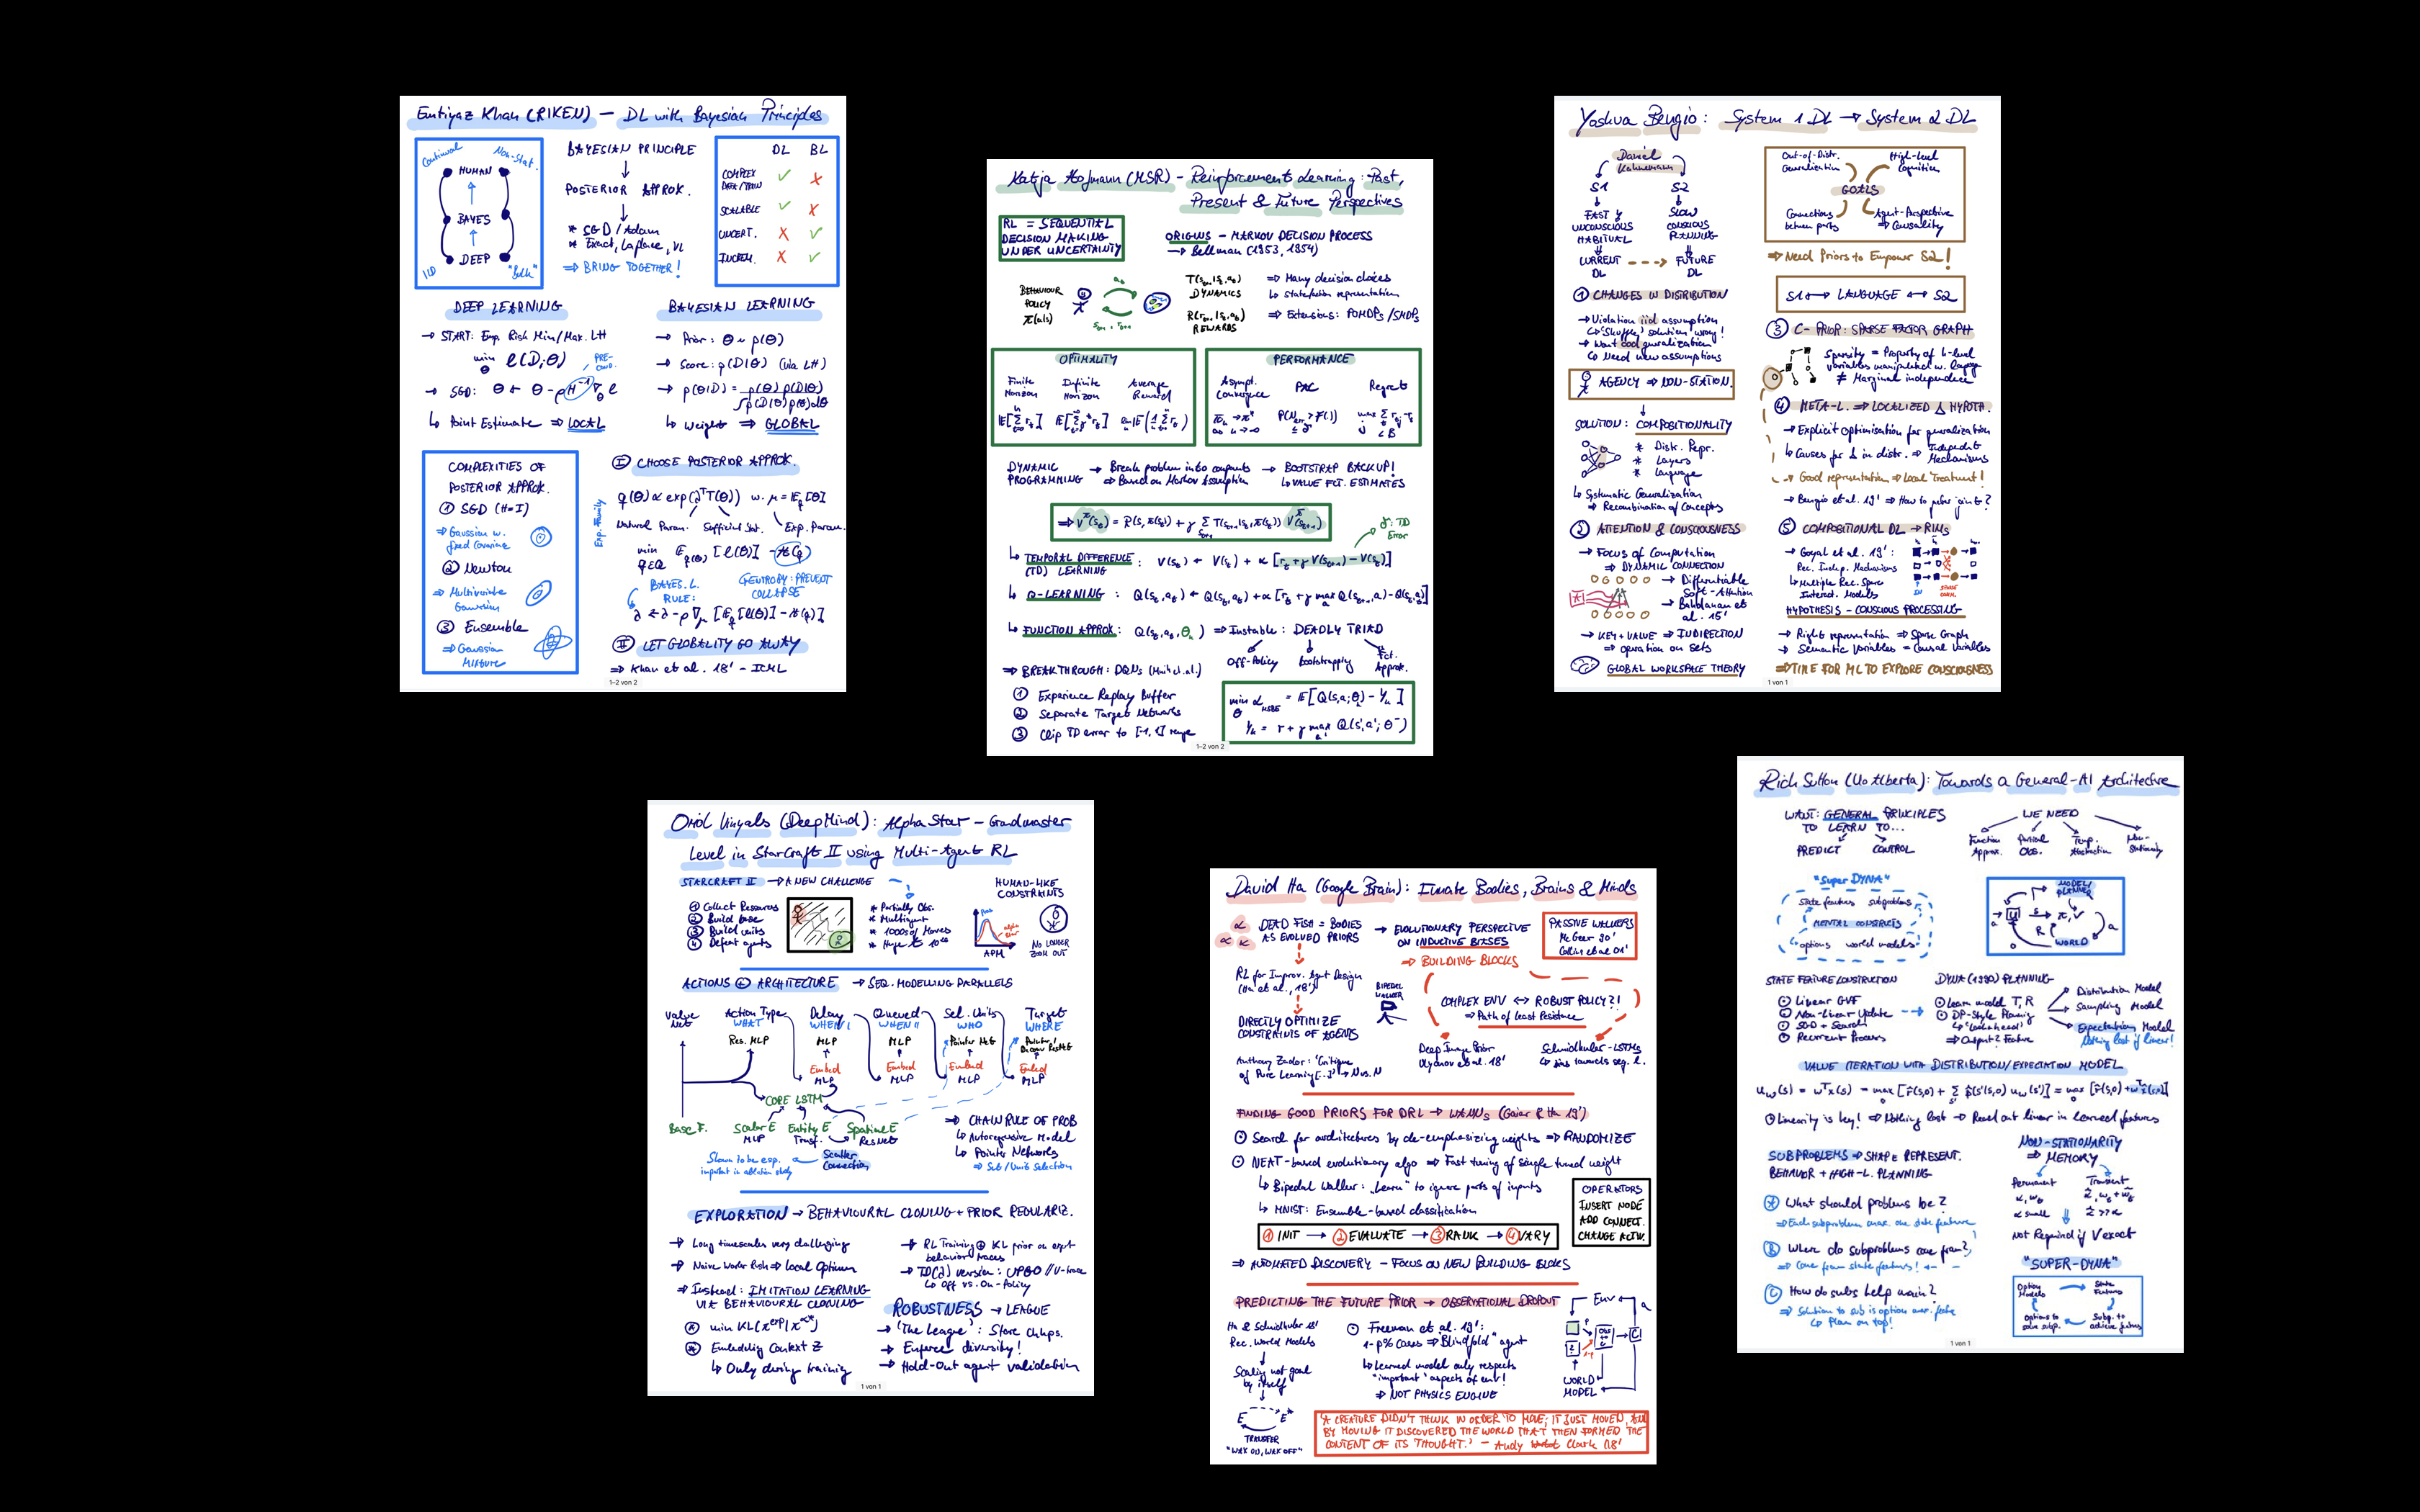 Emtiyaz Khan (RIKEN) — DL with Bayesian Principles
Continual
Non-Stat.
HUMAN
BAYES
DEEP
IID
"Bulk"
BAYESIAN PRINCIPLE
↓
POSTERIOR APPROX.
↓
* SGD / Adam
* Exact, Laplace, VI
⇒ BRING TOGETHER!
DL BL
COMPLEX DATA/TRAIN ✓ ✗
SCALABLE ✓ ✗
UNCERT. ✗ ✓
INCREM. ✗ ✓
DEEP LEARNING
→ START: Emp. Risk Min/Max. LH
min ℓ(D;θ)
θ
PRE-COND.
→ SGD: θ ← θ - ρH⁻¹∇θ ℓ
↳ Point Estimate ⇒ LOCAL
BAYESIAN LEARNING
→ Prior: θ ~ p(θ)
→ Score: p(D|θ) (via LH)
→ p(θ|D) = p(θ) p(D|θ) / ∫p(D|θ)p(θ)dθ
↳ Weight ⇒ GLOBAL
COMPLEXITIES OF
POSTERIOR APPROX.
① SGD (H=I)
⇒ Gaussian w.
fixed Covariance
② Newton
⇒ Multivariate
Gaussian
③ Ensemble
⇒ Gaussian
Mixture
Ⓘ CHOOSE POSTERIOR APPROX.
Exp. Family
q(θ) ∝ exp(λᵀT(θ)) w. μ = E_q[θ]
Natural Param. Sufficient Stat. Exp. Param.
min E_q(θ) [ℓ(θ)] - H(q)
q∈Q
BAYES. L. RULE:
ENTROPY: PREVENT COLLAPSE
λ ← λ - ρ∇μ [E_q[ℓ(θ)] - H(q)]
Ⅱ LET GLOBALITY GO AWAY
⇒ Khan et al. 18' - ICML
1–2 von 2
Katja Hofmann (MSR) - Reinforcement Learning: Past,
Present & Future Perspectives
RL = SEQUENTIAL
DECISION MAKING
UNDER UNCERTAINTY
ORIGINS - MARKOV DECISION PROCESS
→ Bellman (1953, 1954)
BEHAVIOUR
POLICY
π(a|s)
T(sₜ₊₁|sₜ,aₜ)
DYNAMICS
R(rₜ₊₁|sₜ,aₜ)
REWARDS
⇒ Many decision choices
↳ State/Action representation
⇒ Extensions: POMDPs/SMDPs
OPTIMALITY
Finite Horizon
Infinite Horizon
Average Reward
PERFORMANCE
Asympt. Convergence
PAC
Regret
DYNAMIC
PROGRAMMING
→ Break problem into components
⇒ Based on Markov Assumption
→ BOOTSTRAP BACKUP!
↳ VALUE FCT. ESTIMATES
⇒ V^π(sₜ) = R(s,π(sₜ)) + γ Σ T(sₜ₊₁|sₜ,π(sₜ)) V^π(sₜ₊₁)
δ: TD Error
↳ TEMPORAL DIFFERENCE: V(sₜ) ← V(sₜ) + α [rₜ + γ V(sₜ₊₁) - V(sₜ)]
(TD) LEARNING
↳ Q-LEARNING: Q(sₜ,aₜ) ← Q(sₜ,aₜ) + α [rₜ + γ max Q(sₜ₊₁,a) - Q(sₜ,aₜ)]
↳ FUNCTION APPROX: Q(sₜ,aₜ,θₖ) ⇒ Instable: DEADLY TRIAD
Off-Policy Bootstrapping Fct. Approx.
⇒ BREAKTHROUGH: DQNs (Mnih et al.)
① Experience Replay Buffer
② Separate Target Networks
③ Clip TD error to [-1,1] range
min L_MSBE = E[Q(s,a;θₖ) - yₖ]
θ
yₖ = r + γ max Q(s',a';θ⁻)
1–2 von 2
Yoshua Bengio: System 1 DL → System 2 DL
Daniel
Kahnemann
S1 S2
FAST &
UNCONSCIOUS
HABITUAL
SLOW
CONSCIOUS
PLANNING
CURRENT DL
FUTURE DL
Out-of-Distr.
Generalization
High-Level
Cognition
GOALS
Connections
between parts
Agent-Perspective
⇒ Causality
⇒ Need Priors to Empower S2!
S1 ↔ LANGUAGE ↔ S2
① CHANGES IN DISTRIBUTION
→ Violation iid assumption
↳ 'Shuffle' solution wrong!
→ Want ood generalization
↳ Need new assumptions
AGENCY ⇒ NON-STATION.
SOLUTION: COMPOSITIONALITY
* Distr. Repr.
* Layers
* Language
↳ Systematic Generalization
⇒ Recombination of Concepts
② ATTENTION & CONSCIOUSNESS
→ Focus of Computation
⇒ DYNAMIC CONNECTION
→ Differentiable
Soft-Attention
→ Bahdanau et
al. 15'
→ KEY + VALUE ⇒ INDIRECTION
⇒ operation on sets
GLOBAL WORKSPACE THEORY
③ C-PRIOR: SPARSE FACTOR GRAPH
Sparsity = Property of h-level
variables manipulated w. language
≠ Marginal independence
④ META-L. ⇒ LOCALIZED Δ HYPOTH.
→ Explicit Optimisation for generalization
↳ Causes for Δ in distr. ⇒ Independent
Mechanisms
→ Good representation ⇒ Local Treatment!
→ Bengio et al. 19' ⇒ How to infer joint?
⑤ COMPOSITIONAL DL → RIMs
→ Goyal et al. 19':
Rec. Indep. Mechanisms
↳ Multiple Rec. Sparse
Interact. Modules
HYPOTHESIS - CONSCIOUS PROCESSING
→ Right representation ⇒ Sparse Graph
→ Semantic Variables = Causal Variables
⇒ TIME FOR ML TO EXPLORE CONSCIOUSNESS
1 von 1
Oriol Vinyals (DeepMind): AlphaStar - Grandmaster
Level in StarCraft II using Multi-Agent RL
STARCRAFT II → A NEW CHALLENGE
① Collect Resources
② Build base
③ Build units
④ Defeat agents
* Partially Obs.
* Multiagent
* 1000s of Moves
* Huge A: 10²⁶
HUMAN-LIKE
CONSTRAINTS
APM
NO LONGER
ZOOM OUT
ACTIONS ⊕ ARCHITECTURE → SEQ. MODELLING PARALLELS
Value Net
Action Type Delay Queued Sel. Units Target
WHAT WHEN I WHEN II WHO WHERE
Res. MLP MLP MLP Pointer Net Pointer/ Deconv ResNet
Embed Embed Embed Embed
MLP MLP MLP MLP
CORE LSTM
Base F. Scalar E Entity E Spatial E
MLP Transf. ResNet
Shown to be esp.
important in ablation study
Scatter
Connection
⇒ CHAIN RULE OF PROB
↳ Autoregressive Model
↳ Pointer Networks
⇒ Sub/Units Selection
EXPLORATION → BEHAVIOURAL CLONING + PRIOR REGULARIZ.
→ Long timescales very challenging
→ Naive Worker Rush ⇒ Local Optimum
⇒ Instead: IMITATION LEARNING
VIA BEHAVIOURAL CLONING
min KL(
Embedding Context Z
↳ Only during training
→ RL Training ⊕ KL prior on expt
behavior traces
→ TD(λ) version: UPGO // V-trace
↳ Off vs. On-Policy
ROBUSTNESS → LEAGUE
→ 'The League': Store Chkps.
→ Enforce diversity!
→ Hold-Out agent validation
1 von 1
David Ha (Google Brain): Innate Bodies, Brains & Minds
DEAD FISH = BODIES
AS EVOLVED PRIORS
→ EVOLUTIONARY PERSPECTIVE
ON INDUCTIVE BIASES
⇒ BUILDING BLOCKS
PASSIVE WALKERS
McGeer 90'
Collins et al 01'
RL for Improv. Agent Design
(Ha et al., 18')
BIPEDAL
WALKER
DIRECTLY OPTIMIZE
CONSTRAINTS OF AGENTS
COMPLEX ENV ↔ ROBUST POLICY?!
⇒ Path of Least Resistance
Anthony Zador: 'Critique
of Pure Learning[..]' → N vs. N
Deep Image Prior
Ulyanov et al. 18'
Schmidhuber - LSTMs
↳ bias towards seq. l.
FINDING GOOD PRIORS FOR DRL → WANNs (Gaier & Ha 19')
⊙ Search for architectures by de-emphasizing weights ⇒ RANDOMIZE
⊙ NEAT-based evolutionary algo ⇒ Fast tuning of single tuned weight
↳ Bipedal Walker: „Learn" to ignore parts of inputs
↳ MNIST: Ensemble-based classification
OPERATORS
INSERT NODE
ADD CONNECT.
CHANGE ACTIV.
① INIT → ② EVALUATE → ③ RANK → ④ VARY
⇒ AUTOMATED DISCOVERY - FOCUS ON NEW BUILDING BLOCKS
PREDICTING THE FUTURE PRIOR → OBSERVATIONAL DROPOUT
Ha & Schmidhuber 18'
Rec. World Models
↓
Scaling not goal
by itself
TRANSFER
"WAX ON, WAX OFF"
⊙ Freeman et al. 19':
1-p% Cases ⇒ „Blindfold" agent
↳ Learned model only respects
"important" aspects of env!
⇒ NOT PHYSICS ENGINE
Env
WORLD
MODEL
'A CREATURE DIDN'T THINK IN ORDER TO MOVE; IT JUST MOVED, AND
BY MOVING IT DISCOVERED THE WORLD THAT THEN FORMED THE
CONTENT OF ITS THOUGHT.' - Andy Clark 18'
Rich Sutton (Uo Alberta): Towards a General-AI Architecture
WANT: GENERAL PRINCIPLES
TO LEARN TO...
PREDICT CONTROL
WE NEED
Function
Approx.
Partial
Obs.
Temp.
Abstraction
Non-
Stationarity
"Super DYNA"
State features subproblems
MENTAL CONSTRUCTS
options world models
MODEL/
PLANNER
WORLD
STATE FEATURE CONSTRUCTION
⊙ Linear GVF
⊙ Non-linear Update
⊙ SGD + Search
⊙ Recurrent Process
DYNA (1990) PLANNING
⊙ Learn model T, R
⊙ DP-Style Planning
↳ 'Lookahead'
⇒ Output? Feature
Distribution Model
Sampling Model
Expectation Model
Nothing lost if linear!
VALUE ITERATION WITH DISTRIBUTION/EXPECTATION MODEL
⊙ Linearity is key! ⇒ Nothing lost → Read out linear in learned features
SUBPROBLEMS ⇒ SHAPE REPRESENT.
BEHAVIOR + HIGH-L. PLANNING
Ⓐ What should problems be?
⇒ Each subproblem max. one state feature
Ⓑ Where do subproblems come from?
⇒ Come from state features!
Ⓒ How do subs help main?
⇒ Solution to sub is option over. feature
↳ Plan on top!
NON-STATIONARITY
⇒ MEMORY
Permanent Transient
α small
Not Required if V exact
"SUPER-DYNA"
Option
Models
State
Features
Options to
solve subp.
Subp. to
achieve features
1 von 1